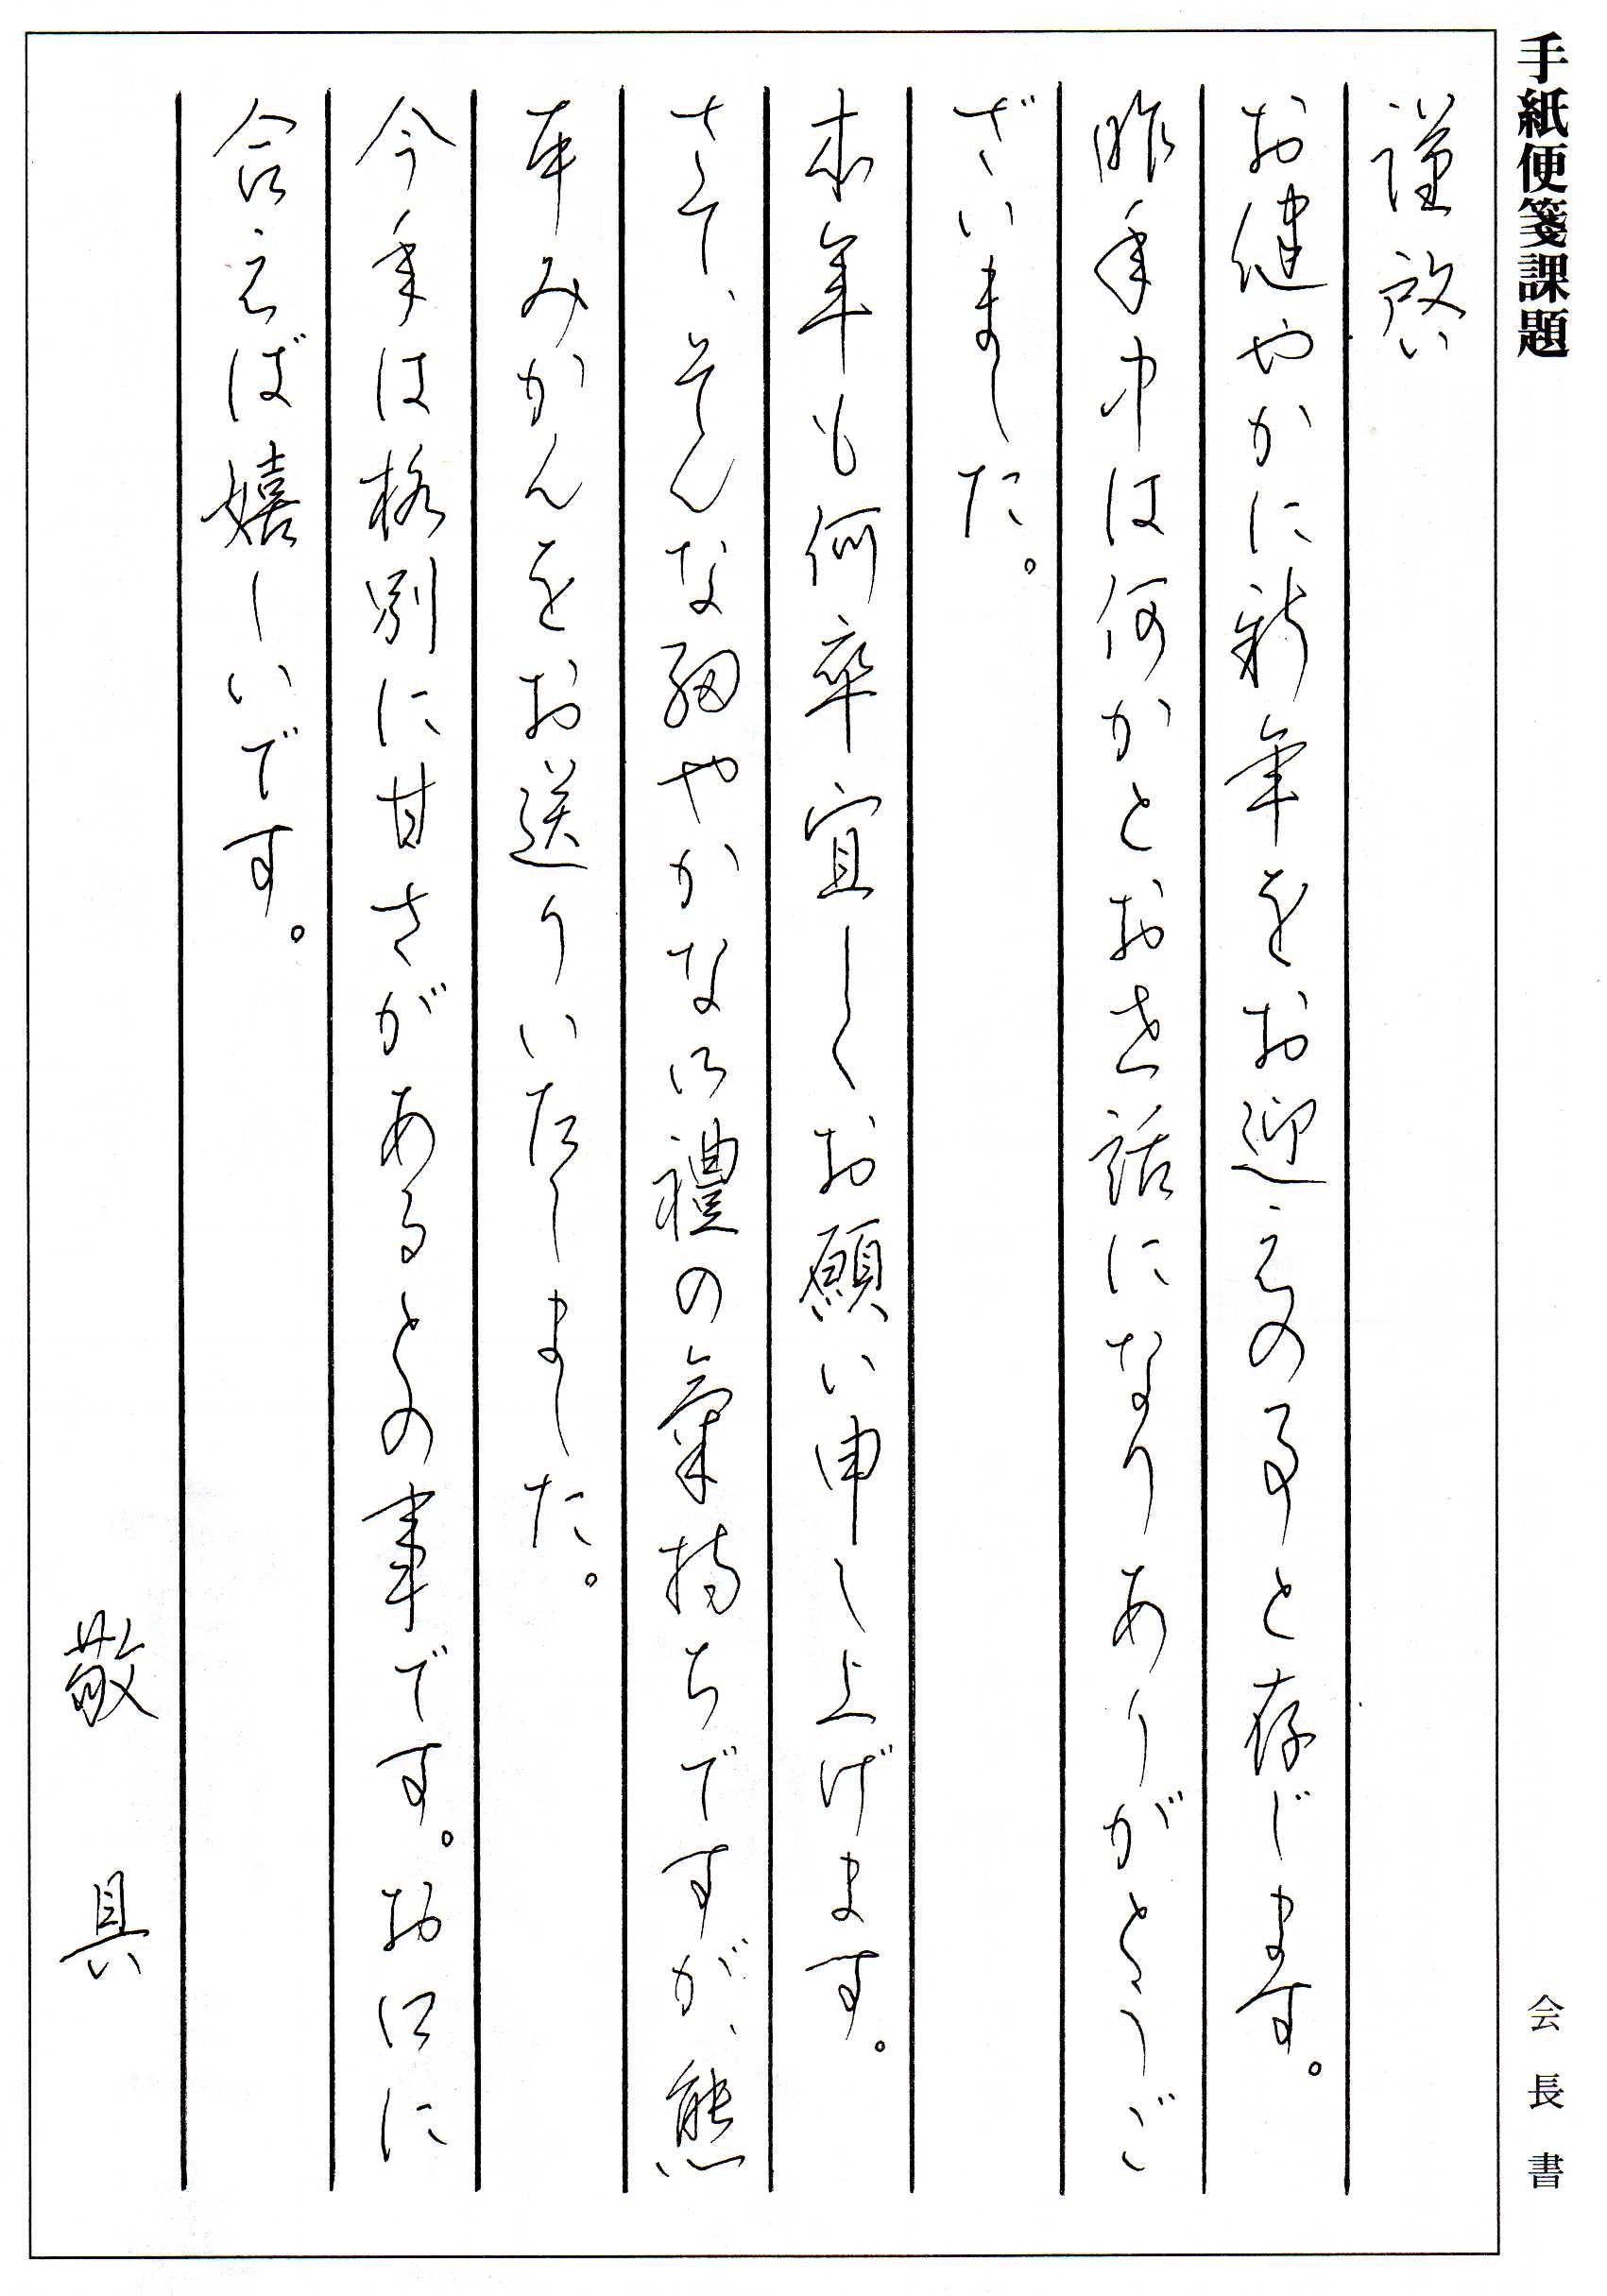 手紙便箋課題
会長書
謹啓
お健やかに新年をお迎えの事と存じます。
昨年中は何かとお世話になりありがとうご
ざいました。
本年も何卒宜しくお願い申し上げます。
さて、そんな細やかな御禮の氣持ちですが、熊
本みかんをお送りいたしました。
今年は格別に甘さがあるとの事です。お口に
合えば嬉しいです。
敬具